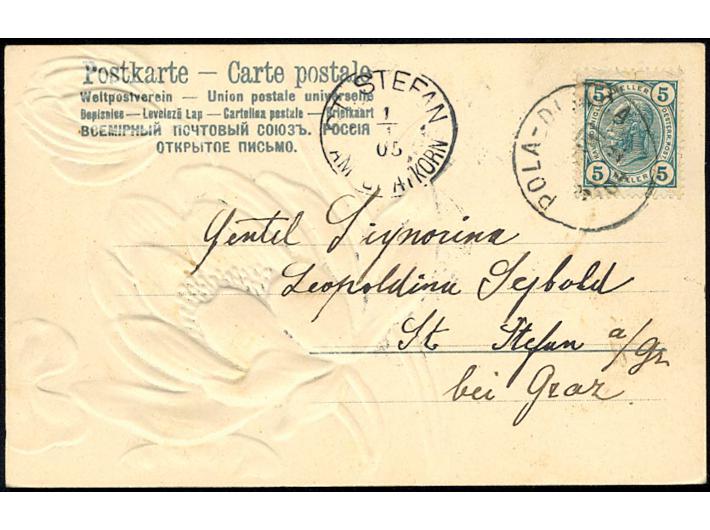 Postkarte — Carte postale
Weltpostverein — Union postale universelle
Dopisnice — Levelező Lap — Cartolina postale — Briefkaart
ВСЕМІРНЫЙ ПОЧТОВЫЙ СОЮЗЪ. РОССІЯ
ОТКРЫТОЕ ПИСЬМО.
ST. STEFAN
1
1
05
AM GRATKORN
POLA-DI
5 HELLER 5
5 HELLER 5
Gentil Signorina
Leopoldina Seybold
St Stefan a/Gr
bei Graz